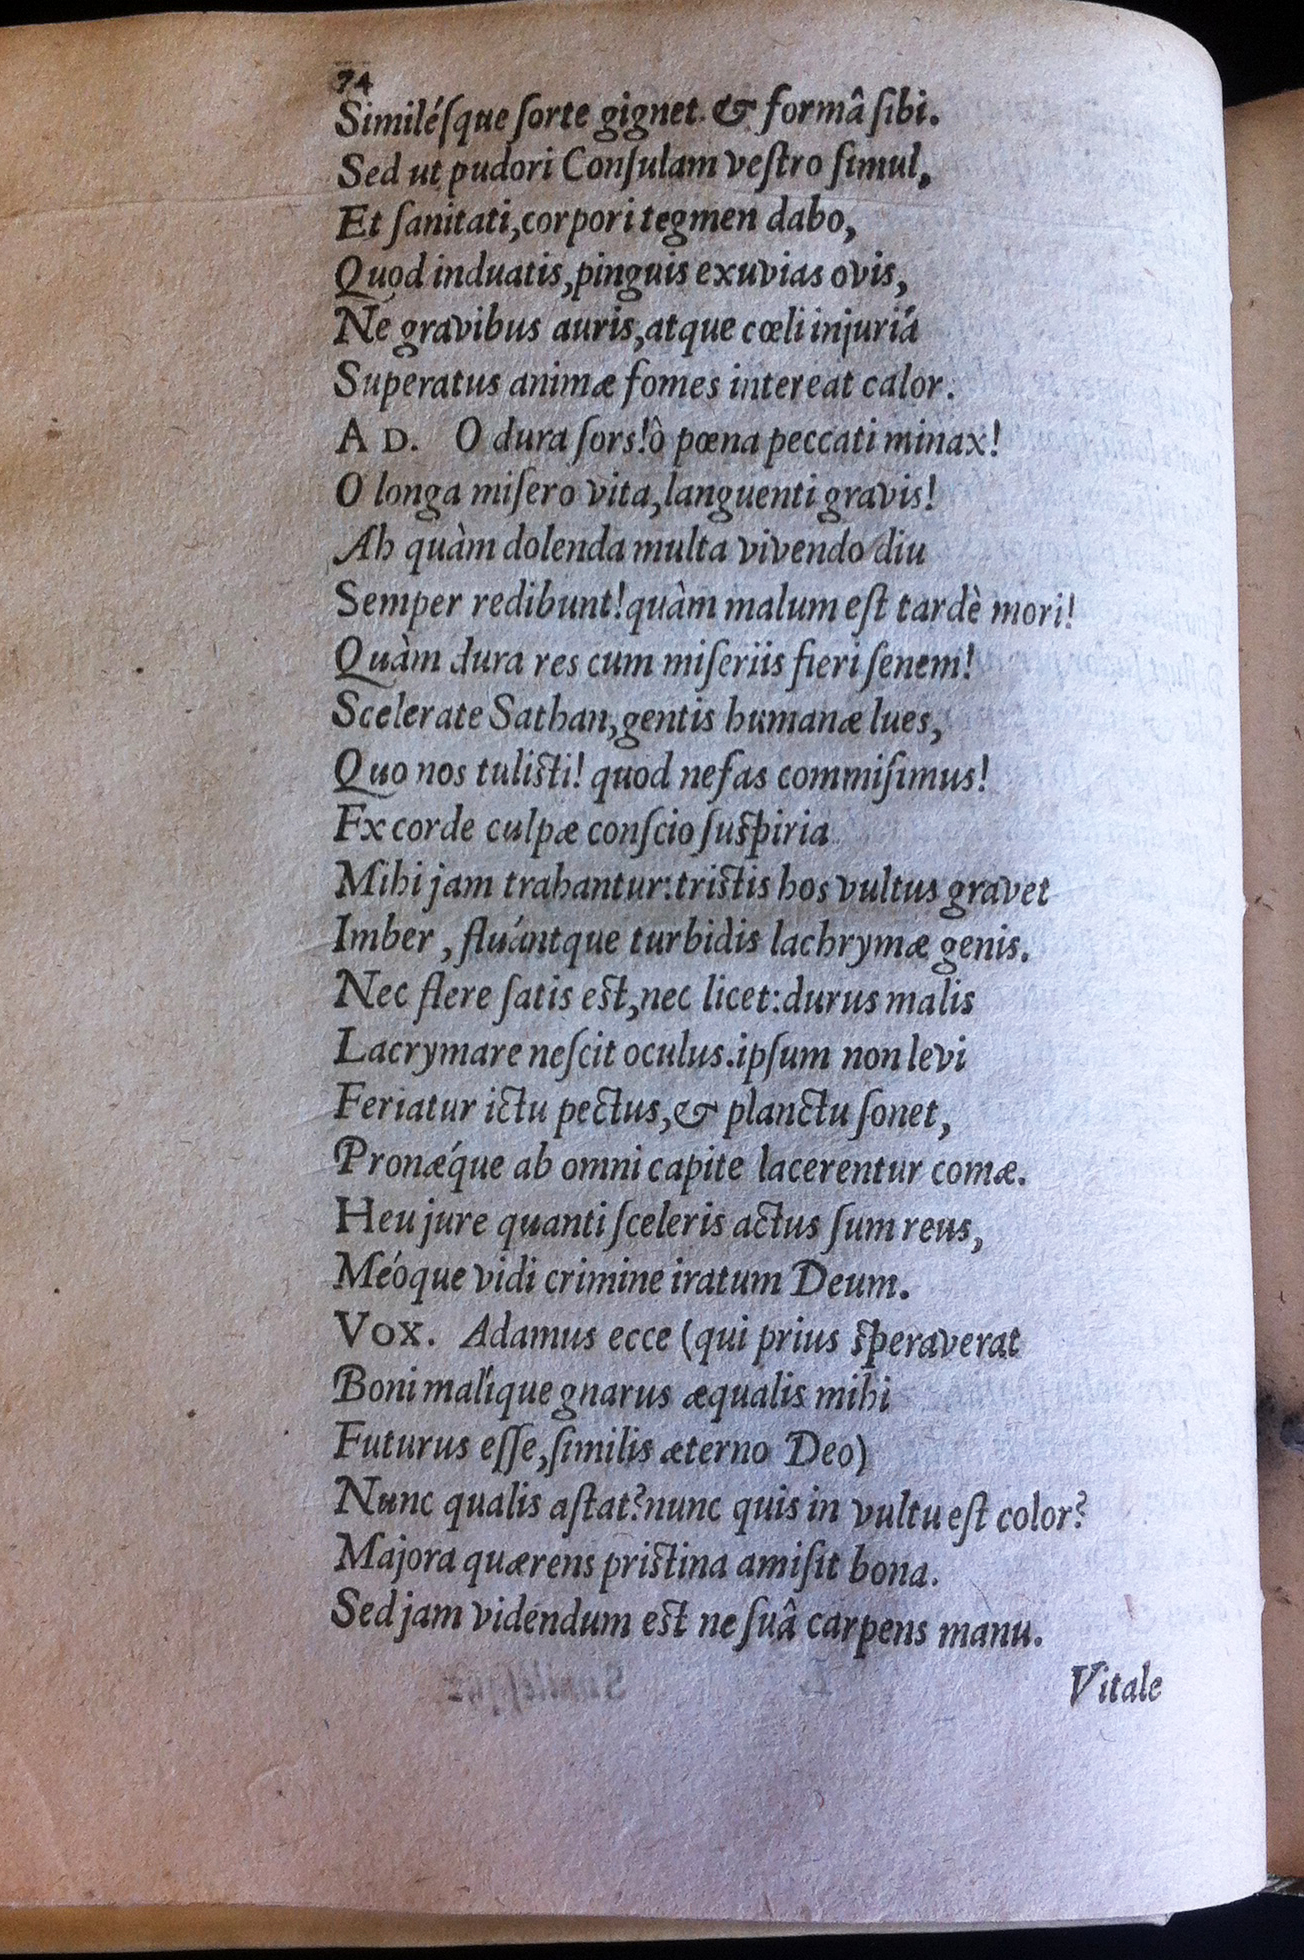 74
Similéſque ſorte gignet. & formâ ſibi.
Sed ut pudori Conſulam veſtro ſimul,
Et ſanitati, corpori tegmen dabo,
Quod induatis, pinguis exuvias ovis,
Né gravibus auris, atque cœli injuriá
Superatus animæ fomes intereat calor.
AD. O dura ſors! ô pœna peccati minax!
O longa miſero vita, languenti gravis!
Ah quàm dolenda multa vivendo diu
Semper redibunt! quàm malum eſt tardè mori!
Quàm dura res cum miſeriis fieri ſenem!
Scelerate Sathan, gentis humanæ lues,
Quo nos tuliſti! quod nefas commiſimus!
Fx corde culpæ conſcio ſuſpiria
Mihi jam trahantur: triſtis hos vultus gravet
Imber, fluántque turbidis lachrymæ genis.
Nec flere ſatis eſt, nec licet: durus malis
Lacrymare neſcit oculus. ipſum non levi
Feriatur ictu pectus, & planctu ſonet,
Pronǽque ab omni capite lacerentur comæ.
Heu jure quanti ſceleris actus ſum reus,
Meóque vidi crimine iratum Deum.
VOX. Adamus ecce (qui prius ſperaverat
Boni malíque gnarus æqualis mihi
Futurus eſſe, ſimilis æterno Deo)
Nunc qualis aſtat? nunc quis in vultu eſt color?
Majora quærens priſtina amiſit bona.
Sed jam videndum eſt ne ſuâ carpens manu.
Vitale